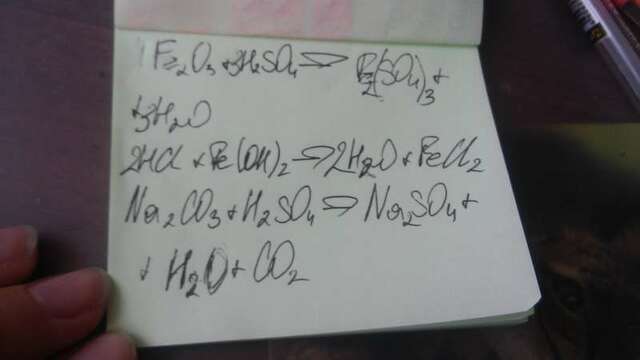 1 Fe₂O₃ + 3H₂SO₄ → Fe₂(SO₄)₃ +
+ 3H₂O
2HCl + Fe(OH)₂ → 2H₂O + FeCl₂
Na₂CO₃ + H₂SO₄ → Na₂SO₄ +
+ H₂O + CO₂